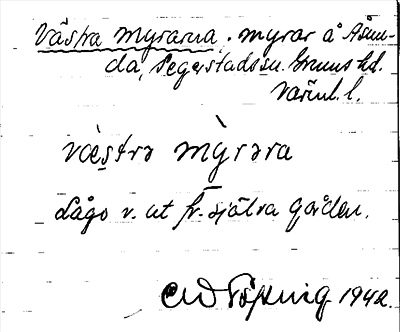 Västra Myrarna. myrar å Åsun-
da, Segerstads sn. Grums hd.
Värml. l.
væstra mỳrara
Lågo v. ut fr. själva gården.
1942.